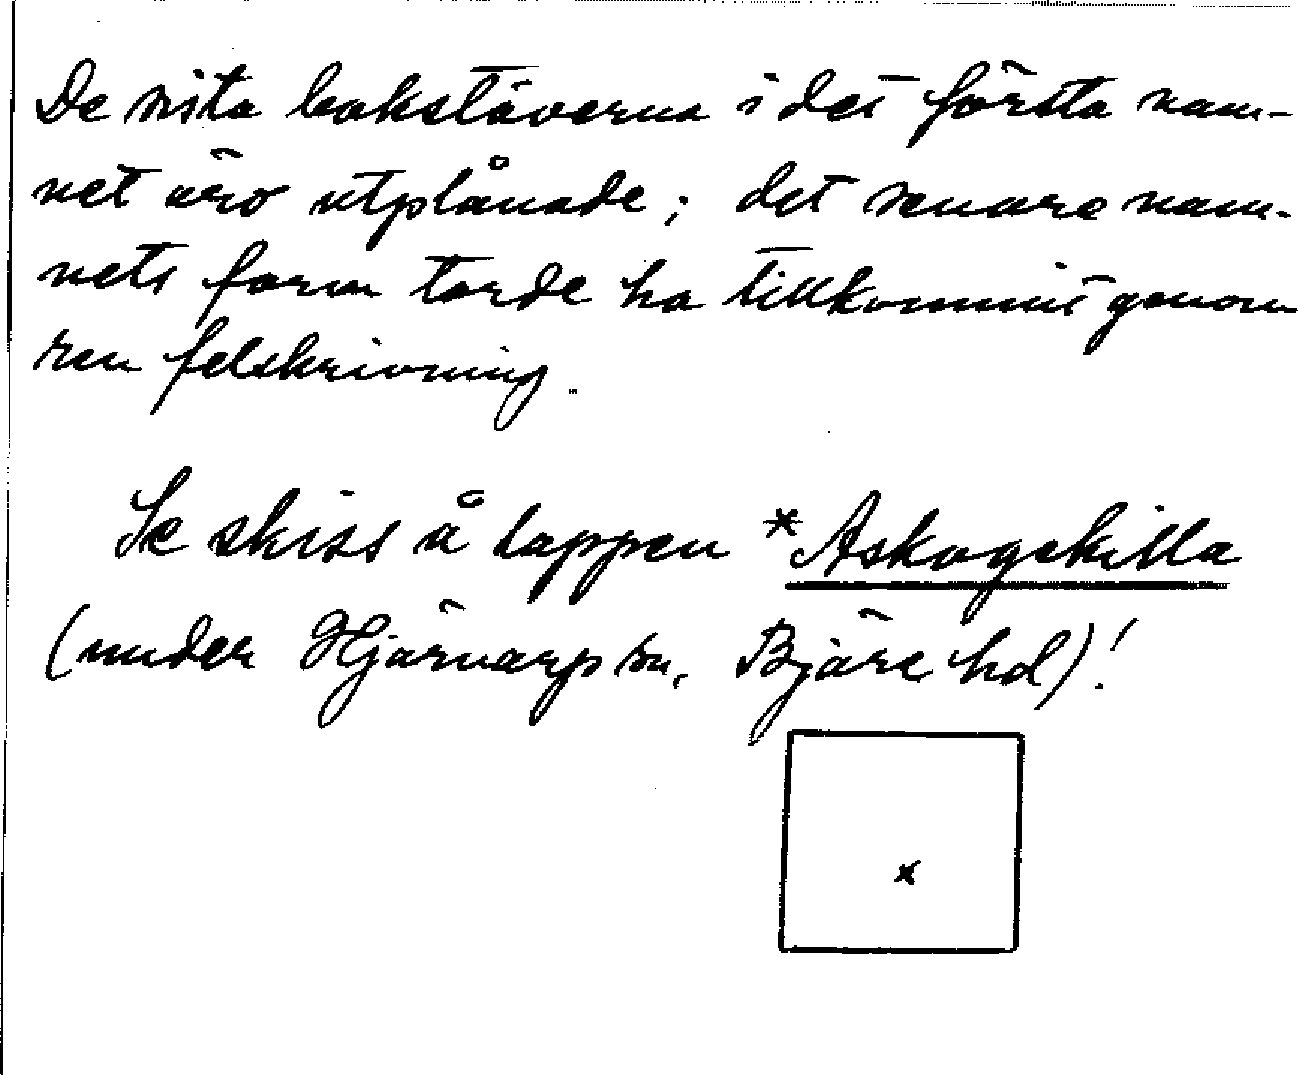 De sista bokstäverna i det första nam-
net äro utplånade; det senare nam-
nets form torde ha tillkommit genom
ren felskrivning.
Se skiss å lappen *Askogekilla
(under Hjärnarp sn, Bjäre hd)!
x